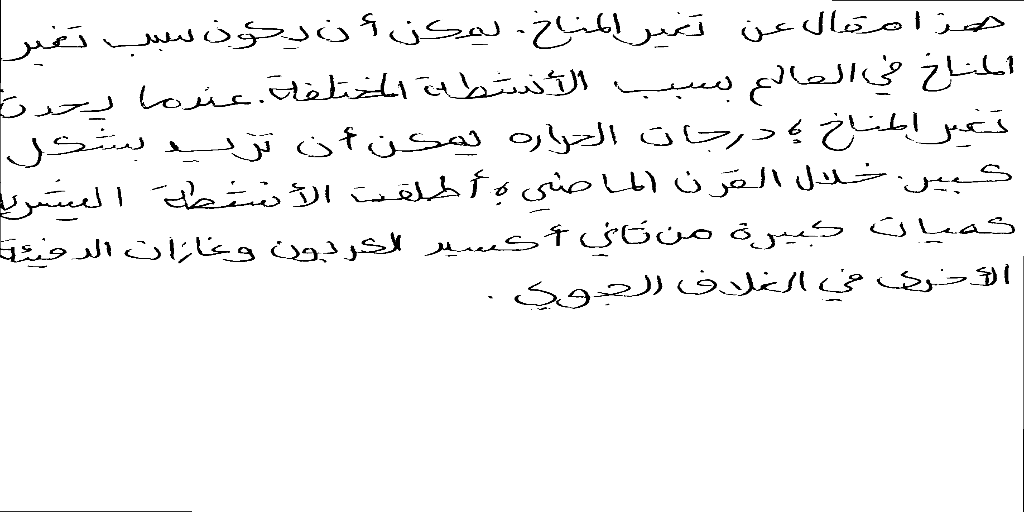 هذا مقال عن تغير المناخ. يمكن أن يكون سبب تغير
المناخ في العالم بسبب الأنشطة المختلفة. عندما يحدث
تغير المناخ، درجات الحراره يمكن أن تزيد بشكل
كبير. خلال القرن الماضي، أطلقت الأنشطة البشرية
كميات كبيرة من ثاني أكسيد الكربون وغازات الدفيئة
الأخرى في الغلاف الجوي.